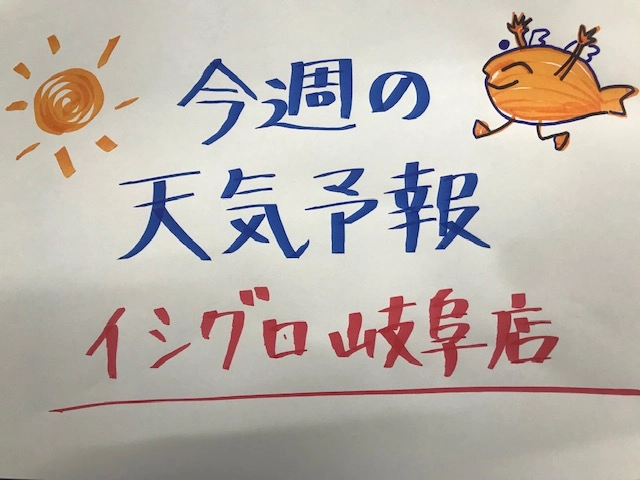 今週の
天気予報
イシグロ岐阜店